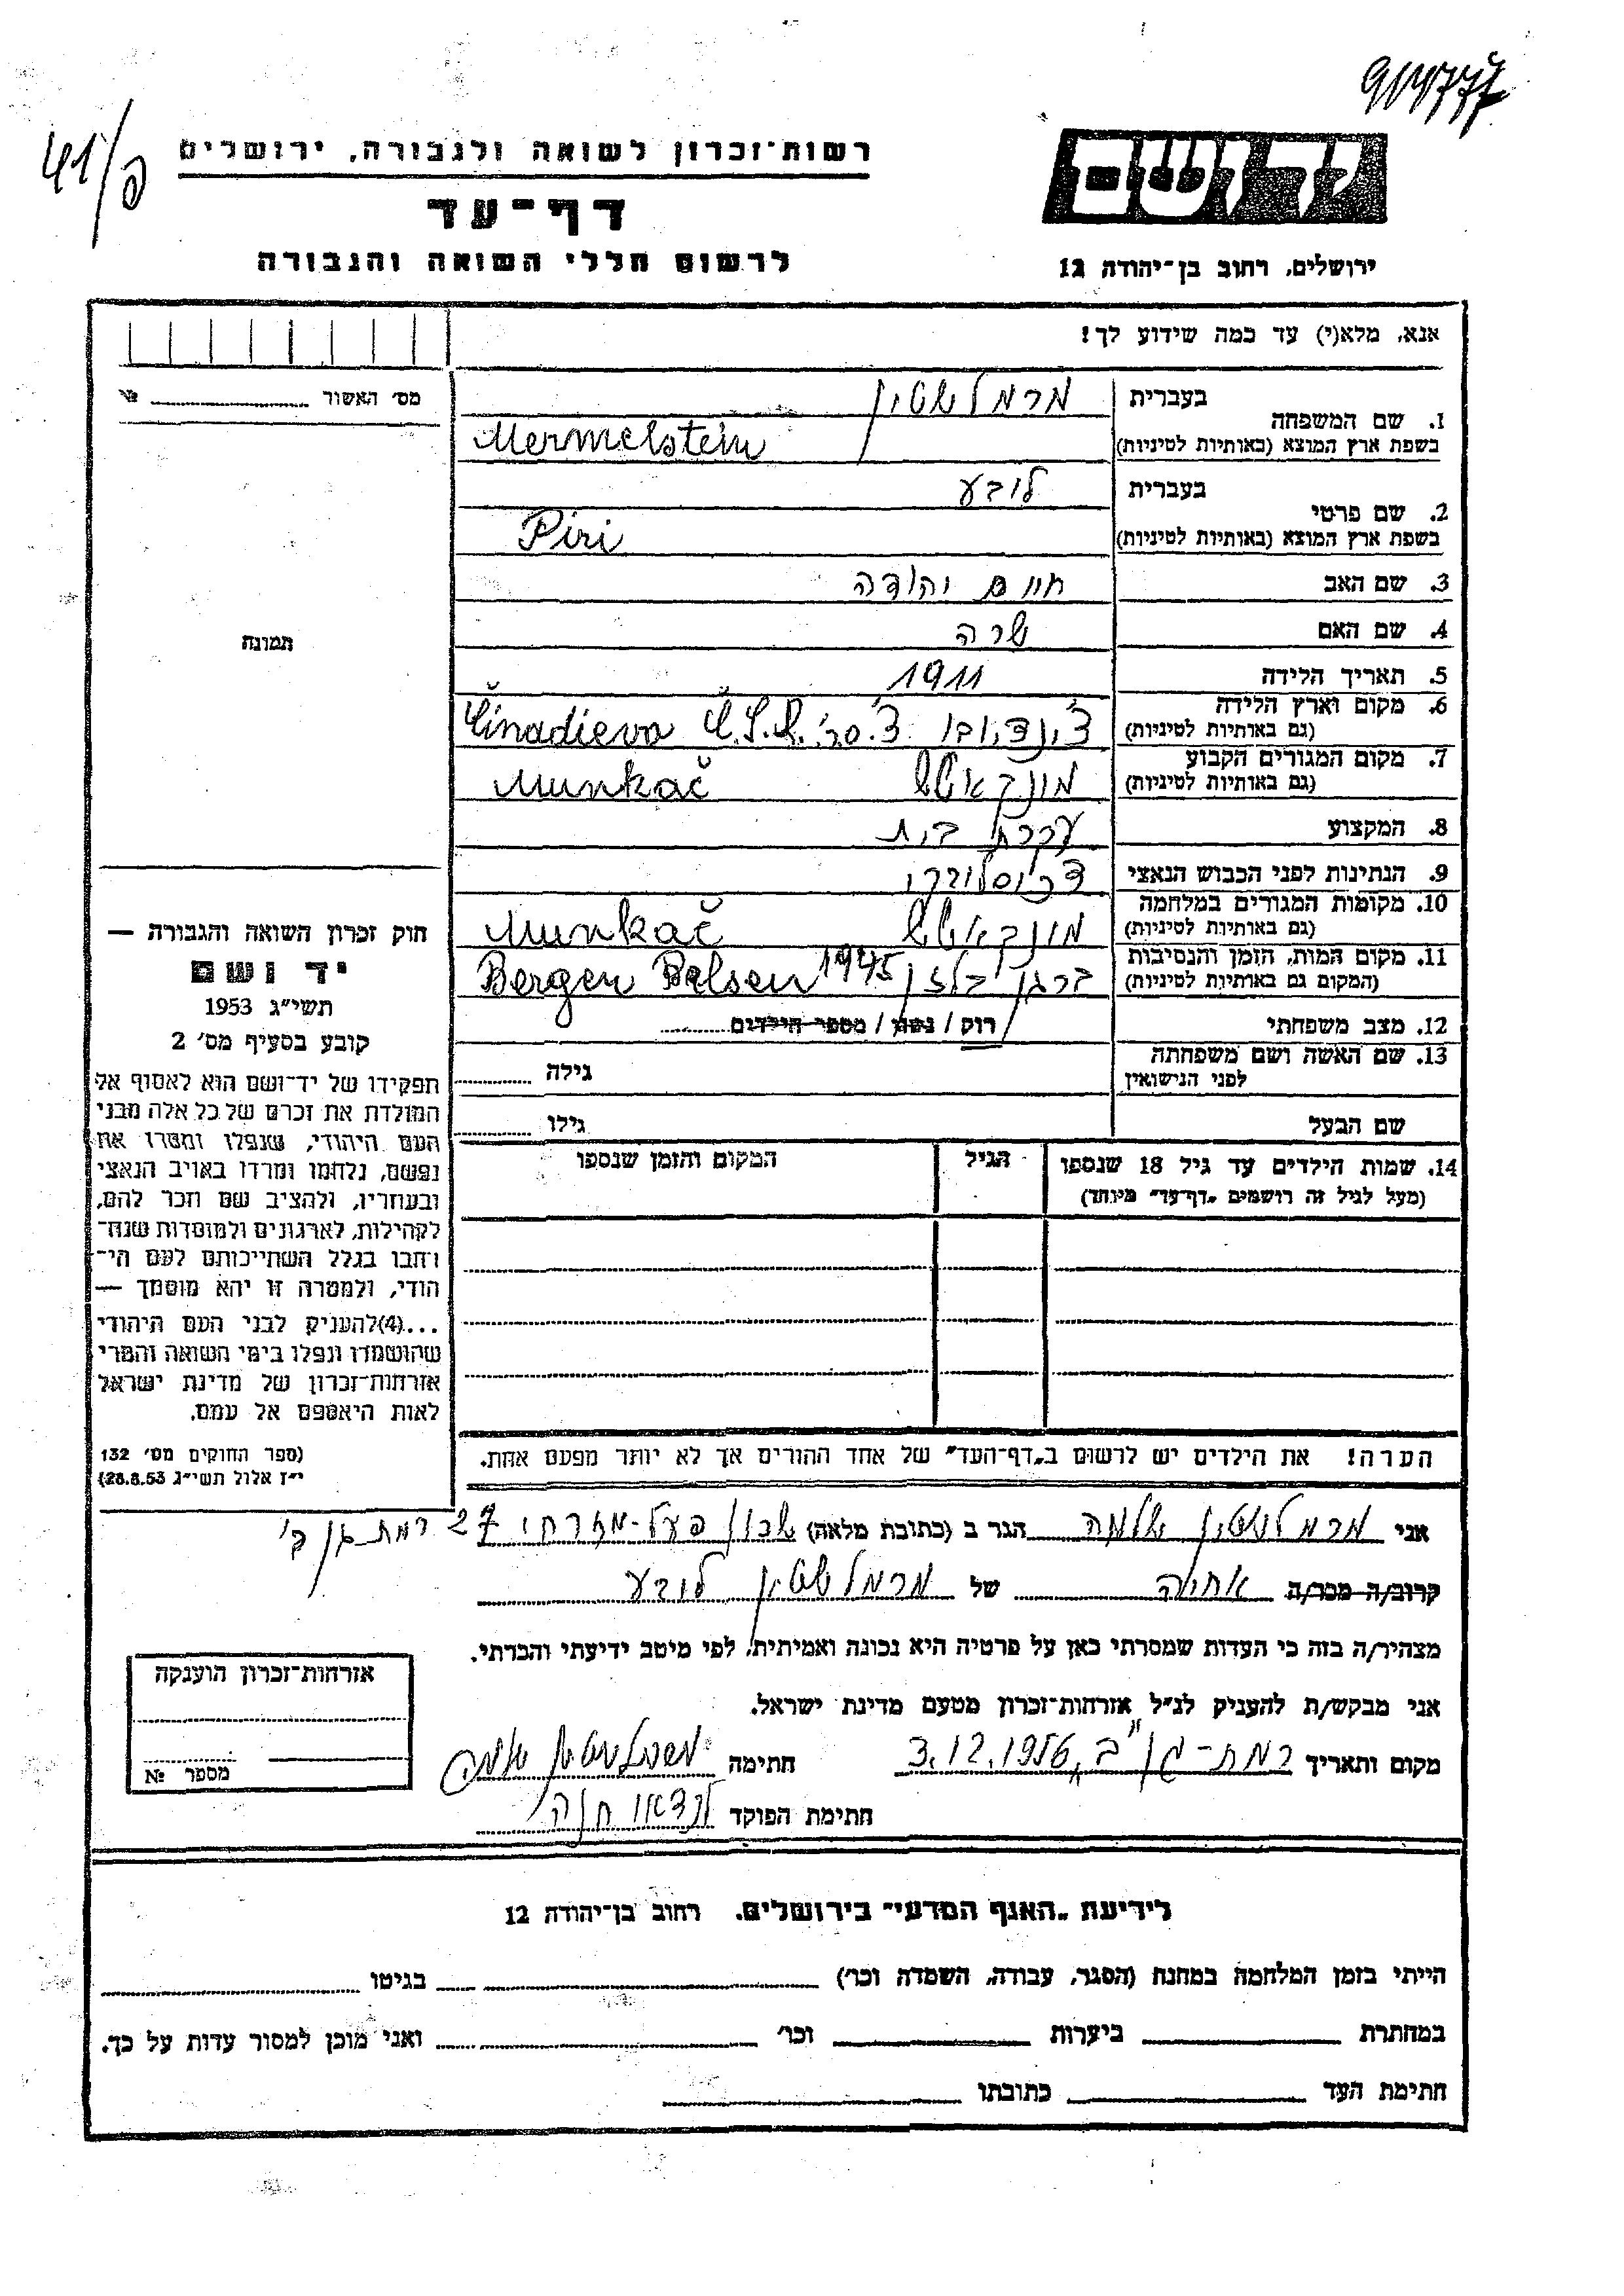 914777
41/פ
רשות־זכרון לשואה ולגבורה, ירושלים
דף־עד
לרשום חללי השואה והגבורה
יד ושם
ירושלים, רחוב בן־יהודה 12
אנא, מלא(י) עד כמה שידוע לך!
מס׳ האשור №
בעברית מרמלשטיין
1. שם המשפחה
בשפת ארץ המוצא (באותיות לטיניות) Mermelstein
בעברית לובע
2. שם פרטי
בשפת ארץ המוצא (באותיות לטיניות) Piri
3. שם האב חיים יהודה
4. שם האם שרה
5. תאריך הלידה 1911
6. מקום וארץ הלידה
(גם באותיות לטיניות) צ׳ינדיובו צ׳.ס.ר. Činadievo Č.S.R.
7. מקום המגורים הקבוע
(גם באותיות לטיניות) מונקאטש Munkač
8. המקצוע עקרת בית
9. הנתינות לפני הכבוש הנאצי
10. מקומות המגורים במלחמה
(גם באותיות לטיניות) מונקאטש Munkač
11. מקום המות, הזמן והנסיבות
(המקום גם באותיות לטיניות) ברגן בלזן 1945 Bergen Belsen
12. מצב משפחתי רוק / נשוי / מספר הילדים
13. שם האשה ושם משפחתה
לפני הנישואין גילה
שם הבעל גילו
14. שמות הילדים עד גיל 18 שנספו הגיל המקום והזמן שנספו
(מעל לגיל זה רושמים „דף־עד״ מיוחד)
הערה! את הילדים יש לרשום ב„דף־העד״ של אחד ההורים אך לא יותר מפעם אחת.
תמונה
חוק זכרון השואה והגבורה —
יד ושם
תשי״ג 1953
קובע בסעיף מס׳ 2
תפקידו של יד־ושם הוא לאסוף אל
המולדת את זכרם של כל אלה מבני
העם היהודי, שנפלו ומסרו את
נפשם, נלחמו ומרדו באויב הנאצי
ובעוזריו, ולהציב שם וזכר להם,
לקהילות, לארגונים ולמוסדות שנח־
רבו בגלל השתייכותם לעם הי־
הודי, ולמטרה זו יהא מוסמך —
...(4)להעניק לבני העם היהודי
שהושמדו ונפלו בימי השואה והמרי
אזרחות־זכרון של מדינת ישראל
לאות היאספם אל עמם.
(ספר החוקים מס׳ 132
י״ז אלול תשי״ג 28.8.53)
אני מרמלשטיין שלמה הגר ב (כתובת מלאה) שכון פעל-מזרחי 27 רמת גן ב׳
קרוב/ה מכר/ה אחיה של מרמלשטיין לובע
מצהיר/ה בזה כי העדות שמסרתי כאן על פרטיה היא נכונה ואמיתית, לפי מיטב ידיעתי והכרתי.
אני מבקש/ת להעניק לנ״ל אזרחות־זכרון מטעם מדינת ישראל.
מקום ותאריך רמת-גן "ב" 3.12.1956 חתימה מרמלשטיין שלמה
חתימת הפוקד לנדאו חנה
אזרחות־זכרון הוענקה
מספר №
לידיעת „האגף המדעי״ בירושלים. רחוב בן־יהודה 12
הייתי בזמן המלחמה במחנה (הסגר, עבודה, השמדה וכו׳) בגיטו
במחתרת ביערות וכו׳ ואני מוכן למסור עדות על כך.
חתימת העד כתובתו